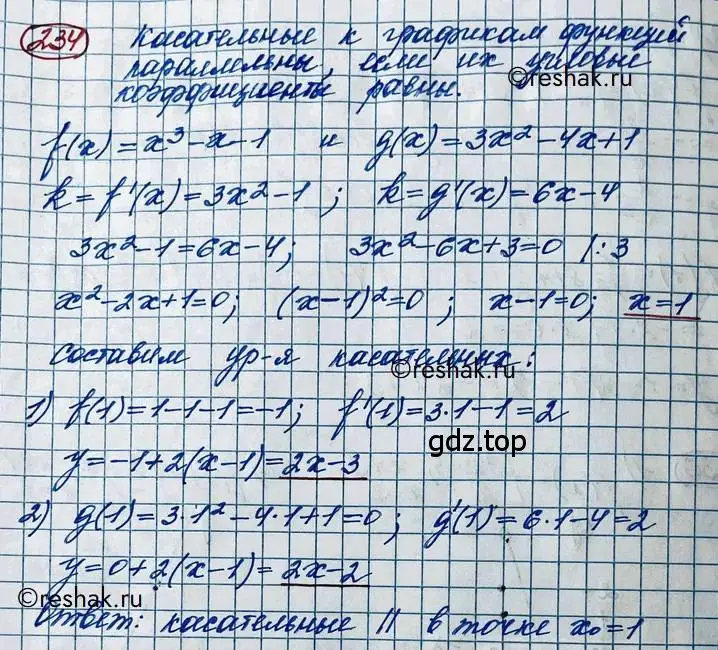 234 Касательные к графикам функций
параллельны, если их угловые
©reshak.ru
коэффициенты равны.
f(x)=x³-x-1 и g(x)=3x²-4x+1
k=f'(x)=3x²-1; k=g'(x)=6x-4
3x²-1=6x-4; 3x²-6x+3=0 /:3
x²-2x+1=0; (x-1)²=0; x-1=0; x=1
Составим ур-я касательных:
©reshak.ru
1) f(1)=1-1-1=-1; f'(1)=3·1-1=2
gdz.top
y=-1+2(x-1)=2x-3
2) g(1)=3·1²-4·1+1=0; g'(1)=6·1-4=2
y=0+2(x-1)=2x-2
©reshak.ru
Ответ: касательные || в точке x₀=1